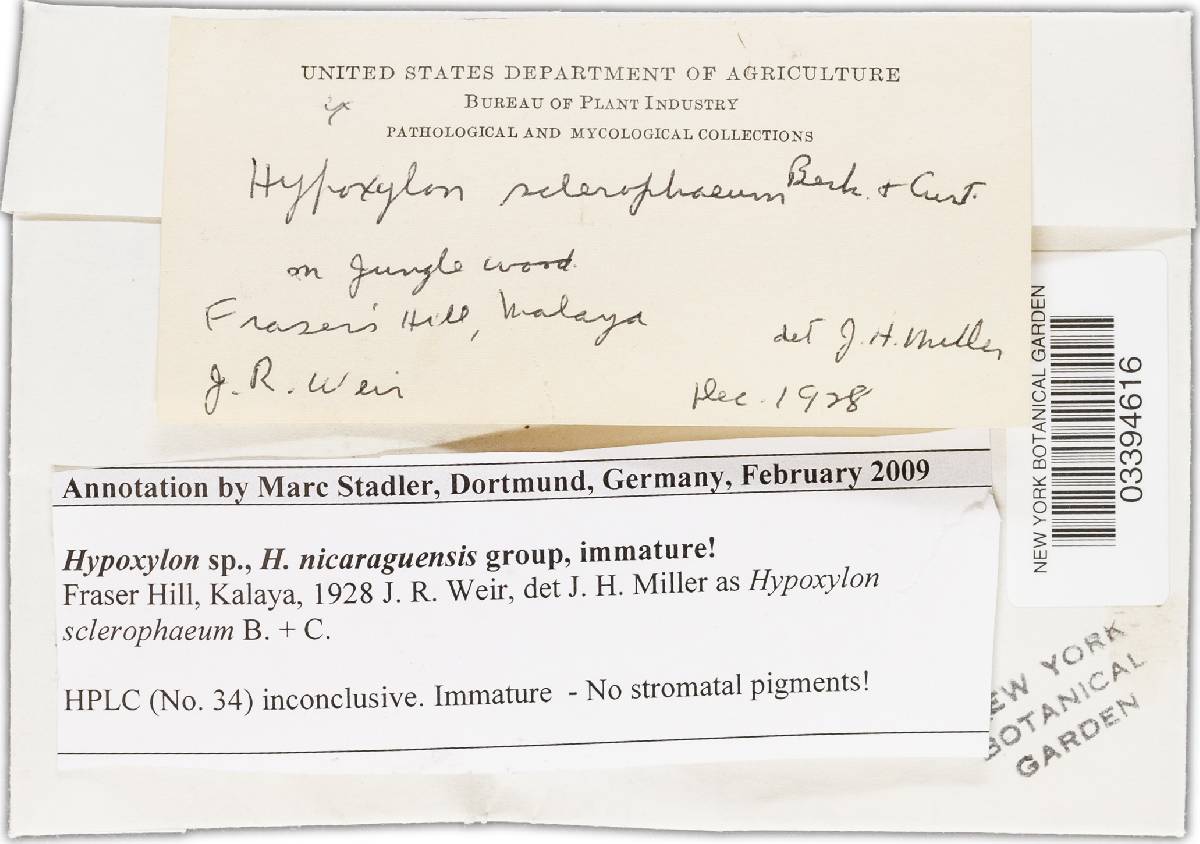 UNITED STATES DEPARTMENT OF AGRICULTURE
BUREAU OF PLANT INDUSTRY
PATHOLOGICAL AND MYCOLOGICAL COLLECTIONS
Hypoxylon sclerophaeum Berk. + Curt.
on jungle wood.
Fraser's Hill, Malaya
det J. H. Miller
J. R. Weir
Dec. 1928
NEW YORK BOTANICAL GARDEN
03394616
Annotation by Marc Stadler, Dortmund, Germany, February 2009
Hypoxylon sp., H. nicaraguensis group, immature!
Fraser Hill, Kalaya, 1928 J. R. Weir, det J. H. Miller as Hypoxylon
sclerophaeum B. + C.
HPLC (No. 34) inconclusive. Immature - No stromatal pigments!
EW YORK
BOTANICAL
GARDEN